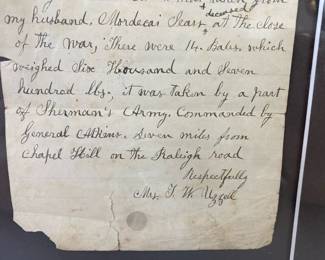 from
my husband. Mordecai Sears deceased at the close
of the war, There were 14. Bales, which
weighed Six Thousand and Seven
hundred lbs. it was taken by a part
of Sherman's Army. Commanded by
General Atkins. Seven miles from
Chapel Hill on the Raleigh road
Respectfully
Mrs. T. W. Uzzell